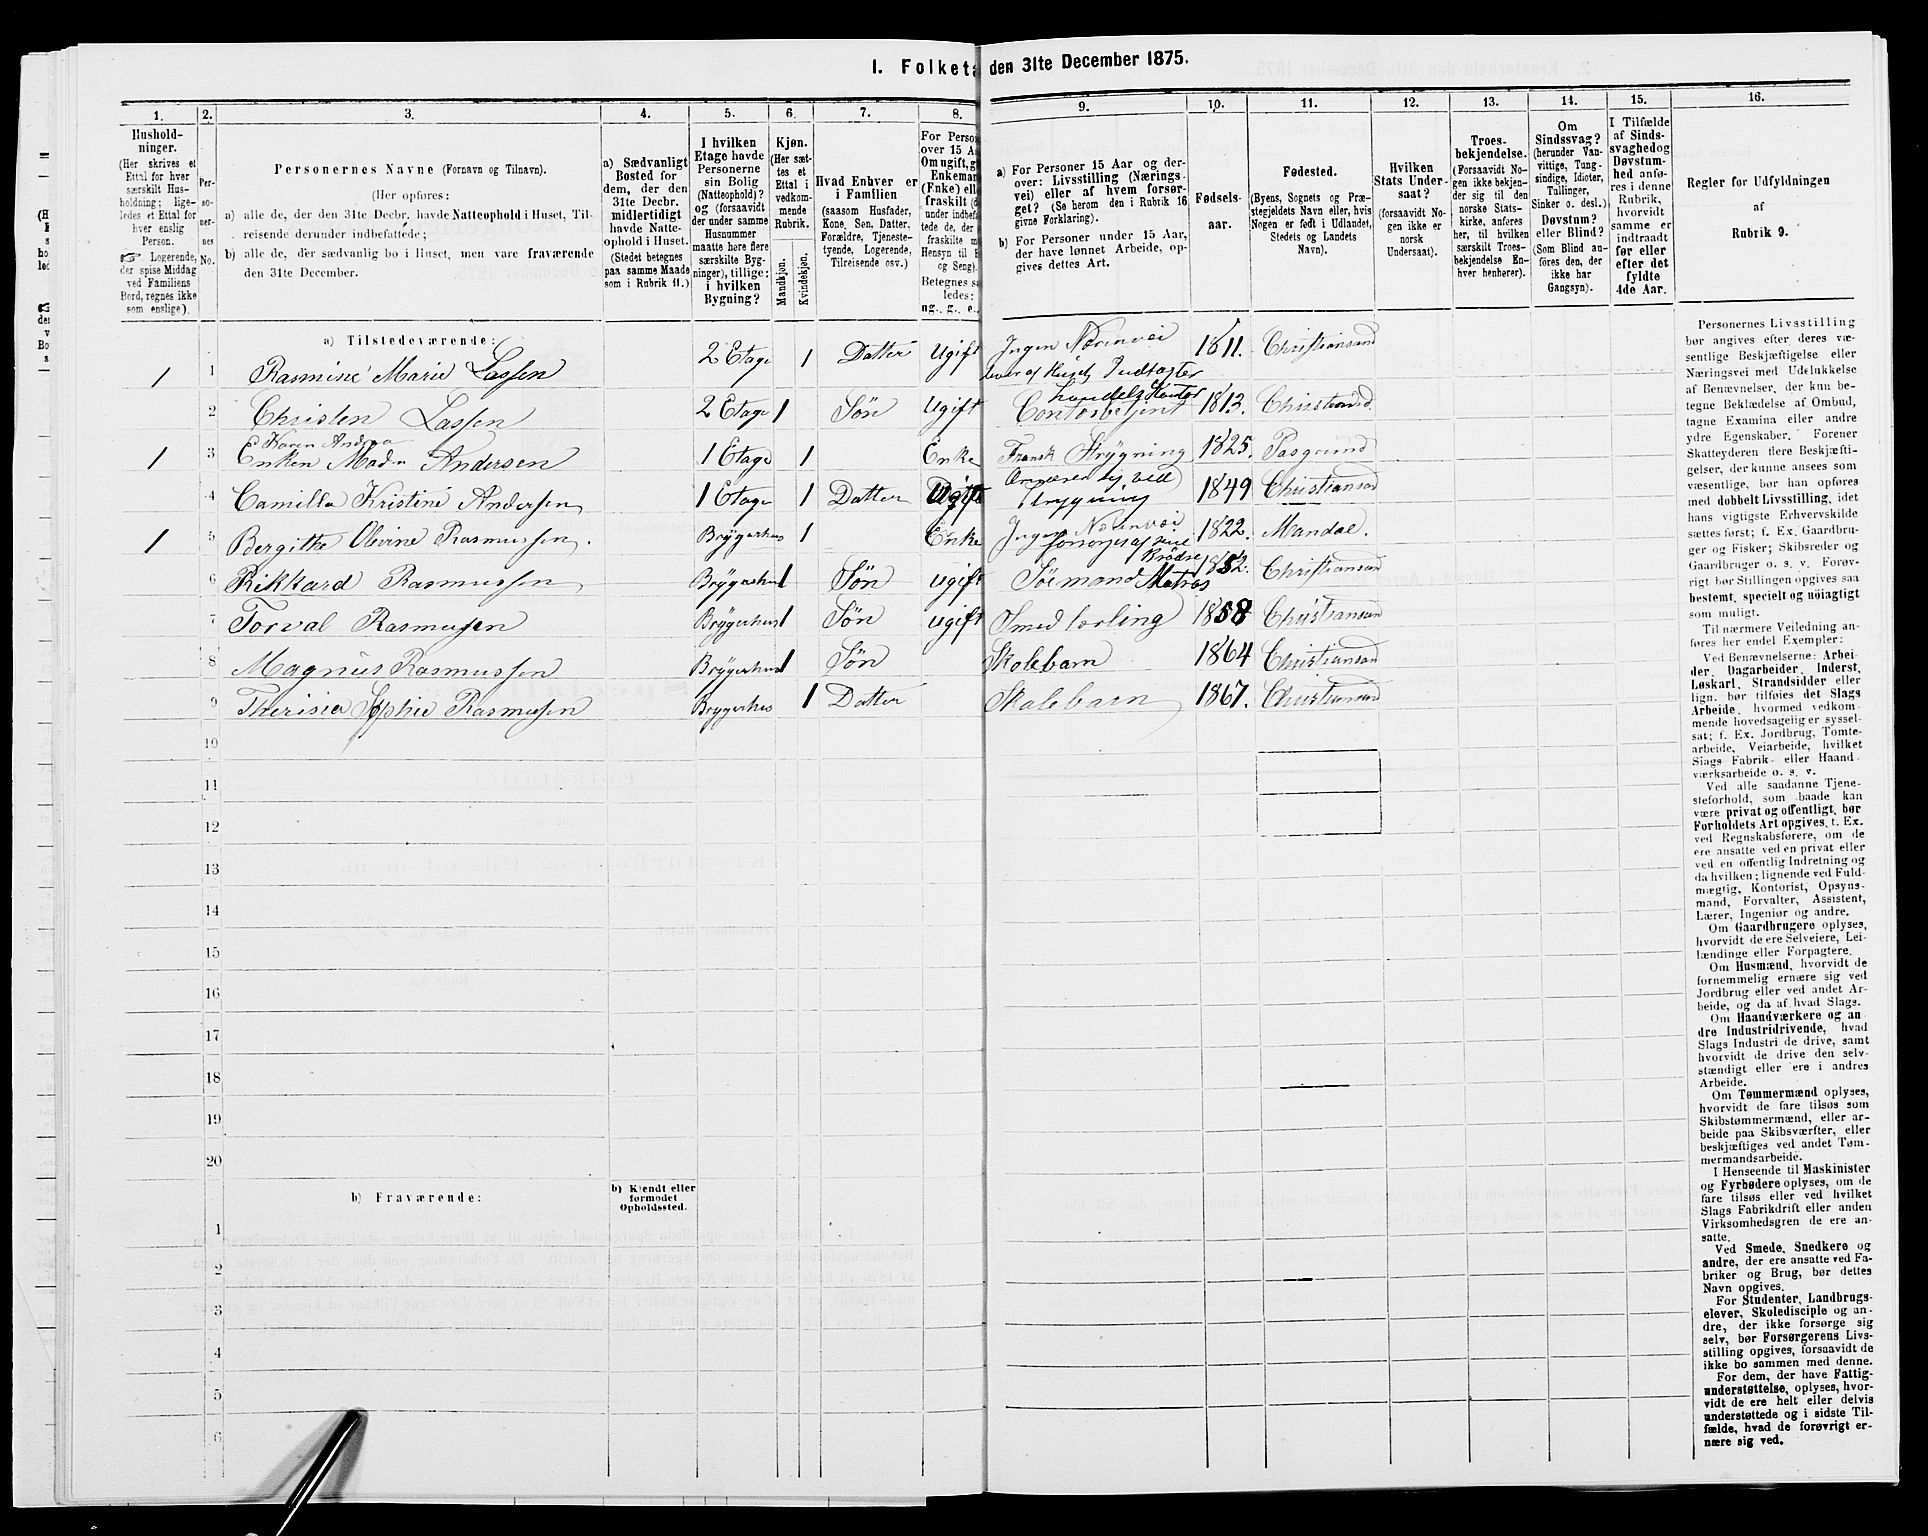 I. Folketæ den 31te December 1875.
1. 2. 3. 4. 5. 6. 7. 8. 9. 10. 11. 12. 13. 14. 15. 16.
Hushold-
ninger.
(Her skrives et
Ettal for hver
særskilt Hus-
holdning; lige-
ledes et Ettal for
hver enslig
Person.
Logerende,
der spise Middag
ved Familiens
Bord, regnes ikke
som enslige).
Per-
so-
ner-
nes
No.
Personernes Navne (Fornavn og Tilnavn).
(Her opføres:
a) alle de, der den 31te Decbr. havde Natteophold i Huset, Til-
reisende derunder indbefattede;
b) alle de, der sædvanlig bo i Huset, men vare fraværende
den 31te December.
a) Sædvanligt
Bosted for
dem, der den
31te Decbr.
midlertidigt
havde Natte-
ophold i Huset.
(Stedet betegnes
paa samme Maade
som i Rubrik 11.)
I hvilken
Etage havde
Personerne
sin Bolig
(Natteophold)?
og (forsaavidt
der under samme
Husnummer
maatte høre flere
særskilte Byg-
ninger), tillige:
i hvilken
Bygning?
Kjøn.
(Her sæt-
tes et
Ettal i
vedkom-
mende
Rubrik.
Mandkjøn.
Kvindekjøn.
Hvad Enhver er
i Familien
(saasom Husfader,
Kone, Søn, Datter,
Forældre, Tjeneste-
tyende, Logerende,
Tilreisende osv.)
For Perso
over 15 A
Om ugift, g
Enkeman
(Enke) ell
fraskilt (d
under indbef
tede de, der
fraskilte m
Hensyn til B
og Seng).
Betegnes s
ledes:
ug., g., e.,
a) For Personer 15 Aar og der-
over: Livsstilling (Nærings-
vei) eller af hvem forsør-
get? (Se herom den i Rubrik 16
givne Forklaring).
b) For Personer under 15 Aar,
der have lønnet Arbeide, op-
gives dettes Art.
Fødsels-
aar.
Fødested.
(Byens, Sognets og Præ-
stegjeldets Navn eller, hvis
Nogen er født i Udlandet,
Stedets og Landets
Navn).
Hvilken
Stats Under-
saat?
(forsaavidt No-
gen ikke er
norsk
Undersaat).
Troes-
bekjendelse.
(Forsaavidt No-
gen ikke bekjen-
der sig til den
norske Stats-
kirke, anføres
her, til hvilken
særskilt Troes-
bekjendelse En-
hver henhører).
Om
Sindssvag?
(herunder Van-
vittige, Tung-
sindige, Idioter,
Tullinger,
Sinker o. desl.)
Døvstum?
eller Blind?
(Som Blind an-
føres den, der
ikke har
Gangsyn).
I Tilfælde
af Sinds-
svaghed og
Døvstum-
hed anfø-
res i denne
Rubrik,
hvorvidt
samme er
indtraadt
før eller
efter det
fyldte
4de Aar.
Regler for Udfyldningen
af
Rubrik 9.
a) Tilstedeværende:
1 1 Rasmine Marie Lassen 2 Etage 1 Datter Ugift Ingen Nærinvei 1811. Christiansand
lever af Husets Indtægter
2 Christen Lassen 2 Etage 1 Søn Ugift Contorbetjent Handels Kontor 1813. Christiansd
Karen Andrea
1 3 Enken Mad. Andersen 1 Etage 1 Enke Fransk Strygning 1825. Posgrund
4 Camilla Kristine Andersen 1 Etage 1 Datter Ugift Ernærer sig ved 1849 Christiansand
Strygning
1 5 Bergithe Olevine Rasmussen. Bryggerhus 1 Enke Ingen Nærinvei 1822. Mandal.
forsørges af sine
6 Rikkard Rasmussen Bryggerhus 1 Søn ugift Sømand Matros 1852. Christiansand
7 Torval Rasmusen Bryggerhus 1 Søn ugift Smed lærling 1858 Christiansand
8 Magnus Rasmussen Bryggerhus 1 Søn Skolebarn 1864 Christiansand
9 Therisia Sophie Rasmusen Bryggerhus 1 Datter Skolebarn 1867. Christiansand
10
11
12
13
14
15
16
17
18
19
20
b) Fraværende:
b) Kjendt eller
formodet
Opholdssted.
1
2
3
4
5
6
Personernes Livsstilling
bør angives efter deres væ-
sentlige Beskjæftigelse eller
Næringsvei med Udelukkelse
af Benævnelser, der kun be-
tegne Beklædelse af Ombud,
tagne Examina eller andre
ydre Egenskaber. Forener
Skatteyderen flere Beskjæfti-
gelser, der kunne ansees som
væsentlige, bør han opføres
med dobbelt Livsstilling, idet
hans vigtigste Erhvervskilde
sættes først; f. Ex. Gaardbru-
ger og Fisker; Skibsreder og
Gaardbruger o. s. v. Forøv-
rigt bør Stillingen opgives saa
bestemt, specielt og nöiagtigt
som muligt.
Til nærmere Veiledning an-
føres her endel Exempler:
Ved Benævnelserne: Arbei-
der, Dagarbeider, Inderst,
Løskarl, Strandsidder eller
lign. bør tilføies det Slags
Arbeide, hvormed vedkom-
mende hovedsagelig er syssel-
sat; f. Ex. Jordbrug, Tomte-
arbeide, Veiarbeide, hvilket
Slags Fabrik- eller Haand-
værksarbeide o. s. v.
Ved alle saadanne Tjene-
steforhold, som baade kan
være privat og offentligt, bør
Forholdets Art opgives, f. Ex.
ved Regnskabsførere, om de
ere ansatte ved en privat eller
ved en offentlig Indretning og
da hvilken; lignende ved Fuld-
mægtig, Kontorist, Opsyns-
mand, Forvalter, Assistent,
Lærer, Ingeniør og andre.
Om Gaardbrugere oplyses,
hvorvidt de ere Selveiere, Lei-
lændinge eller Forpagtere.
Om Husmænd, hvorvidt de
fornemmelig ernære sig ved
Jordbrug eller ved andet Ar-
beide, og da af hvad Slags.
Om Haandværkere og an-
dre Industridrivende, hvad
Slags Industri de drive, samt
hvorvidt de drive den selv-
stændigt eller ere i andres
Arbeide.
Om Tømmermænd oplyses,
hvorvidt de fare tilsøs som
Skibstømmermænd, eller ar-
beide paa Skibsværfter, eller
beskjæftiges ved andet Tøm-
mermandsarbeide.
I Henseende til Maskinister
og Fyrbødere oplyses, om de
fare tilsøs eller ved hvilket
Slags Fabrikdrift eller anden
Virksomhedsgren de ere an-
satte.
Ved Smede, Snedkere og
andre, der ere ansatte ved Fa-
briker og Brug, bør dettes
Navn opgives.
For Studenter, Landbrugs-
elever, Skoledisciple og an-
dre, der ikke forsørge sig
selv, bør Forsørgerens Livs-
stilling opgives, forsaavidt de
ikke bo sammen med denne.
For dem, der have Fattig-
understøttelse, oplyses, hvor-
vidt de ere helt eller delvis
understøttede og i sidste Til-
fælde, hvad de forøvrigt er-
nære sig ved.